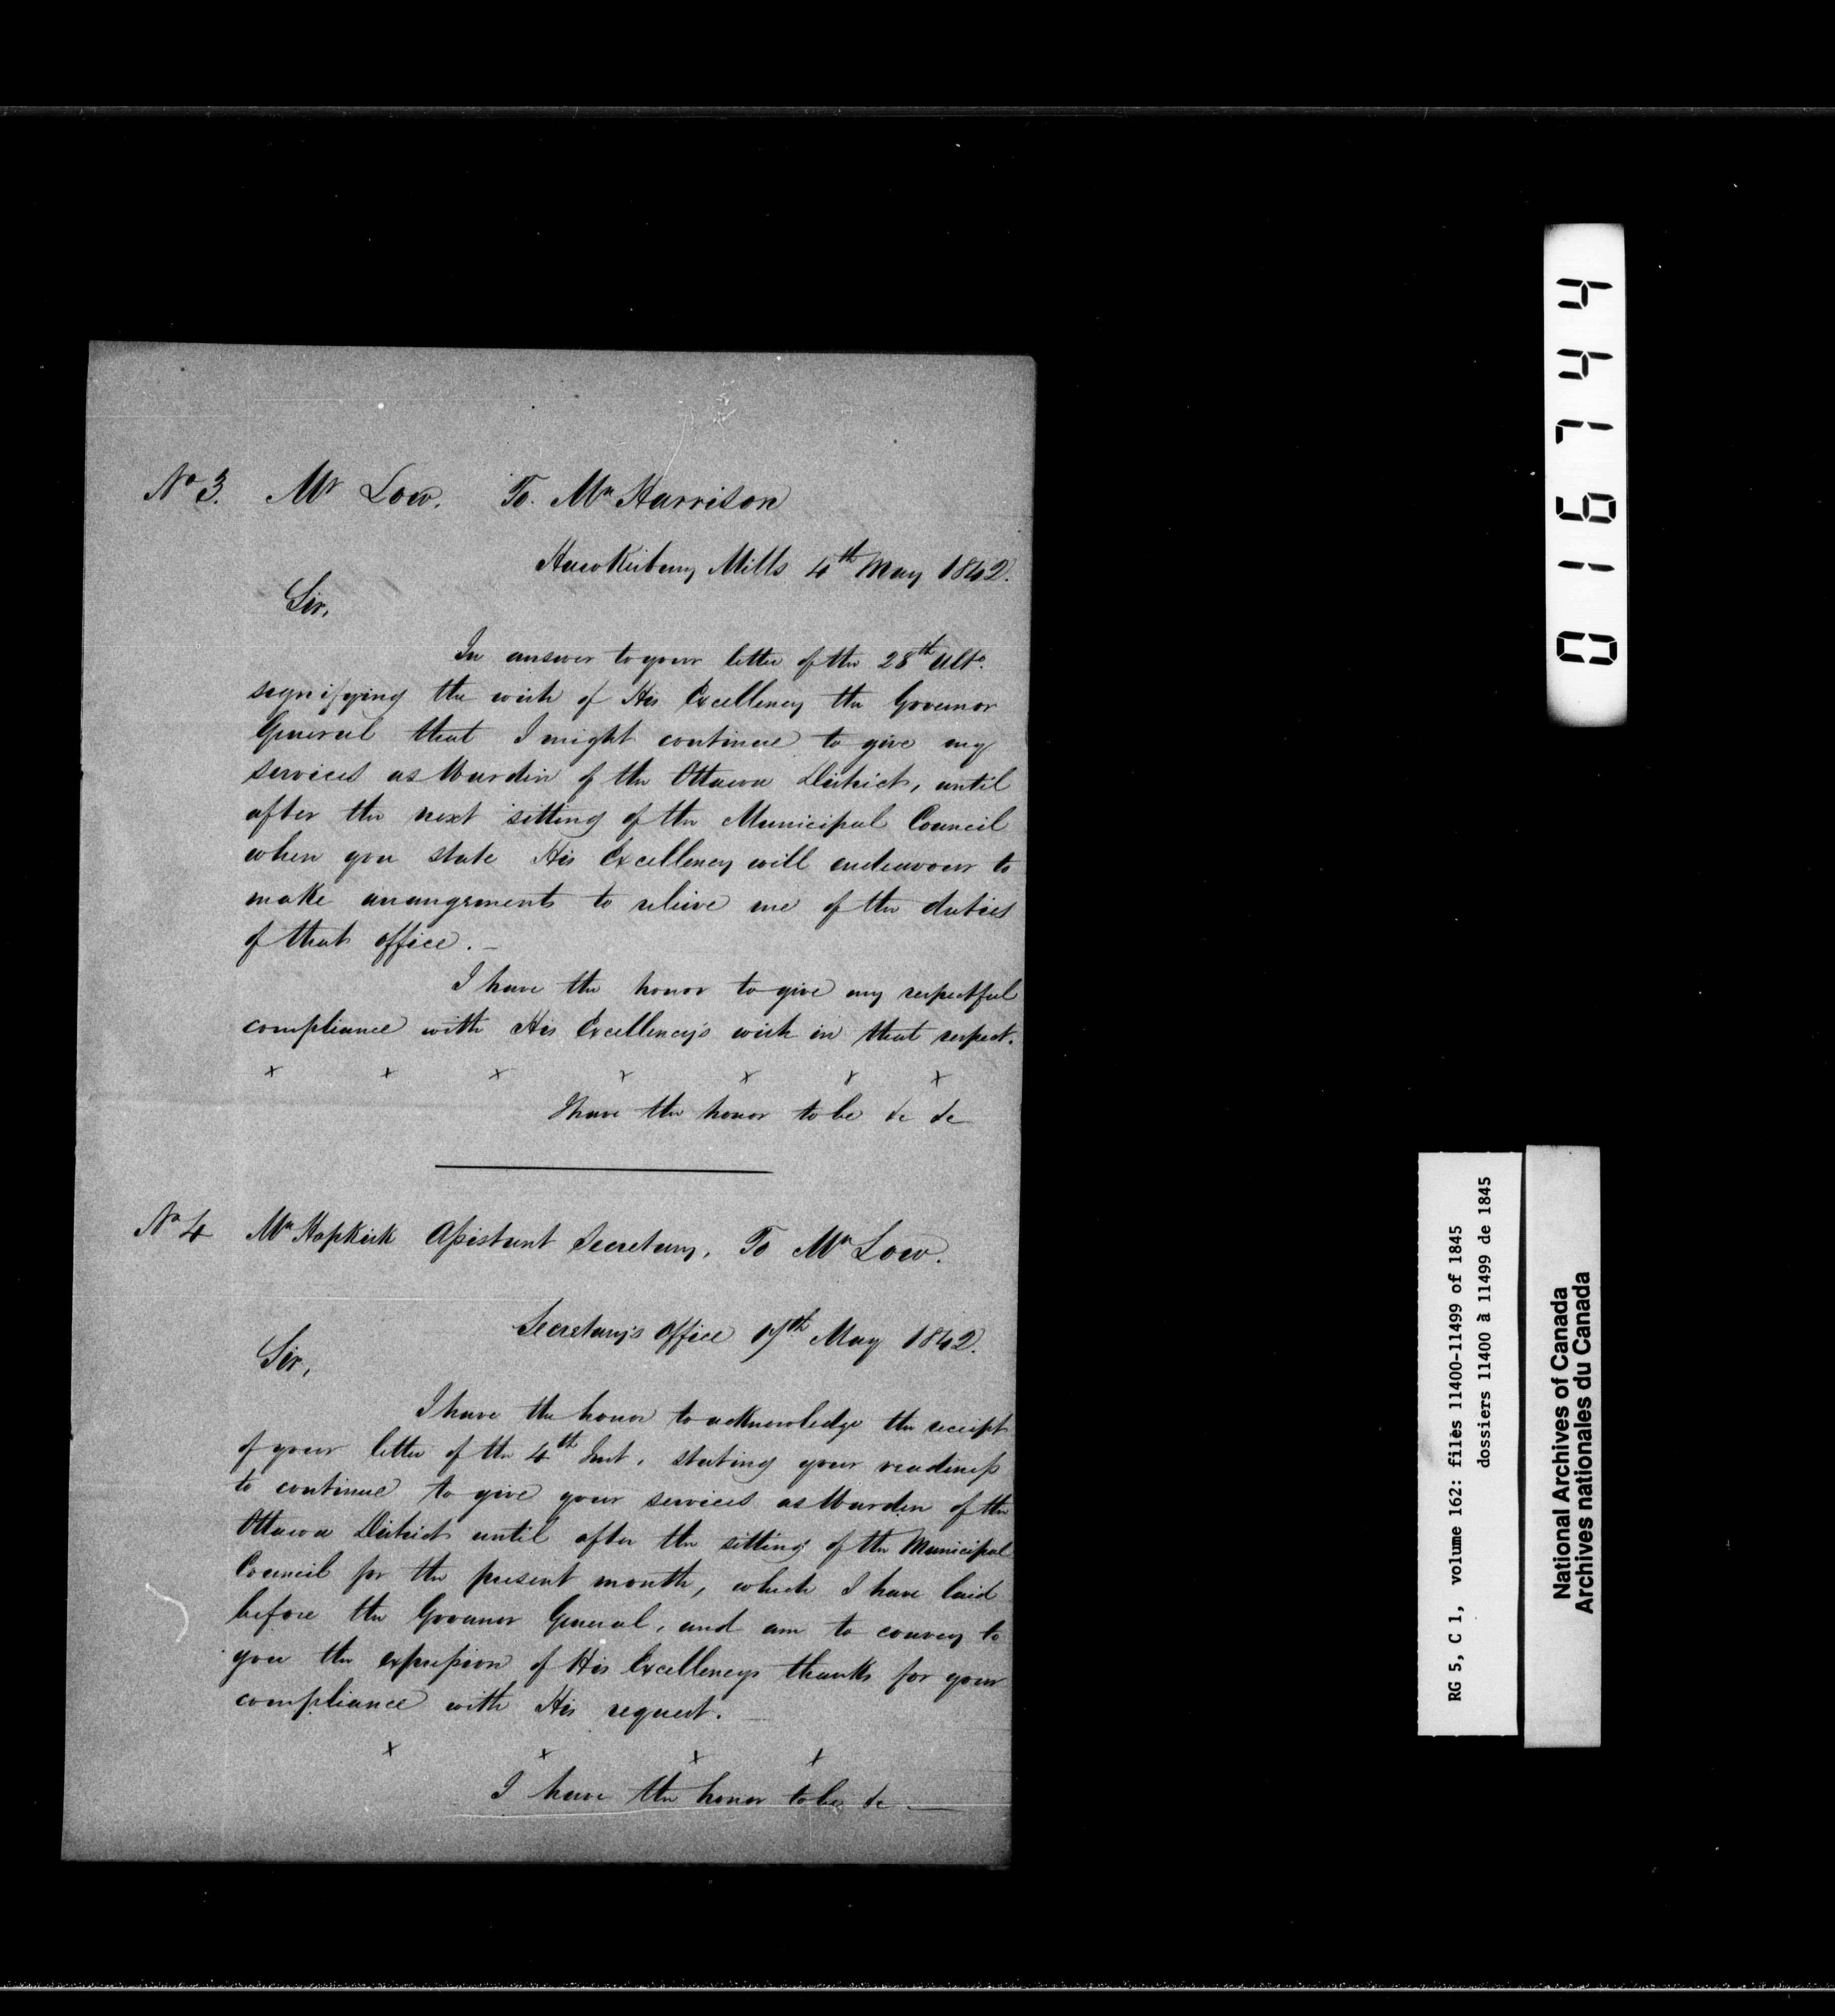 No 3. Mr Low. To. Mr Harrison
Hawkesbury Mills 4th May 1842.
Sir,
In answer to your letter of the 28th Ulto.
signifying the wish of His Excellency the Governor
General that I might continue to give my
services as Warden of the Ottawa District, until
after the next sitting of the Municipal Council
when you state His Excellency will endeavour to
make arrangements to relieve me of the duties
of that office. —
I have the honor to give my respectful
compliance with His Excellency's wish in that respect.
x x x x x x x
I have the honor to be &c &c
No 4 Mr Hopkirk Assistant Secretary, To Mr Low.
Secretary's Office 17th May 1842.
Sir,
I have the honor to acknowledge the receipt
of your letter of the 4th Inst, stating your readiness
to continue to give your services as Warden of the
Ottawa District until after the sitting of the Municipal
Council for the present month, which I have laid
before the Governor General, and am to convey to
you the expression of His Excellencys thanks for your
compliance with His request. —
x x x x
I have the honor to be &c —
016744
RG 5, C 1, volume 162: files 11400-11499 of 1845
dossiers 11400 à 11499 de 1845
National Archives of Canada
Archives nationales du Canada